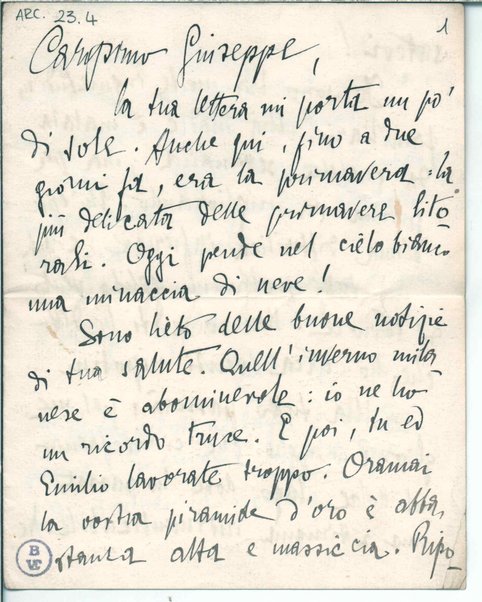 ARC. 23.4
1
Carissimo Giuseppe,
la tua lettera mi porta un po'
di sole. Anche qui, fino a due
giorni fa, era la primavera: la
più delicata delle primavere lito
rali. Oggi pende nel cielo bianco
una minaccia di neve!
Sono lieto delle buone notizie
di tua salute. Quell'inverno mila
nese è abominevole: io ne ho
un ricordo truce. E poi, tu ed
Emilio lavorate troppo. Oramai
la vostra piramide d'oro è abba
stanza alta e massiccia. Ripo